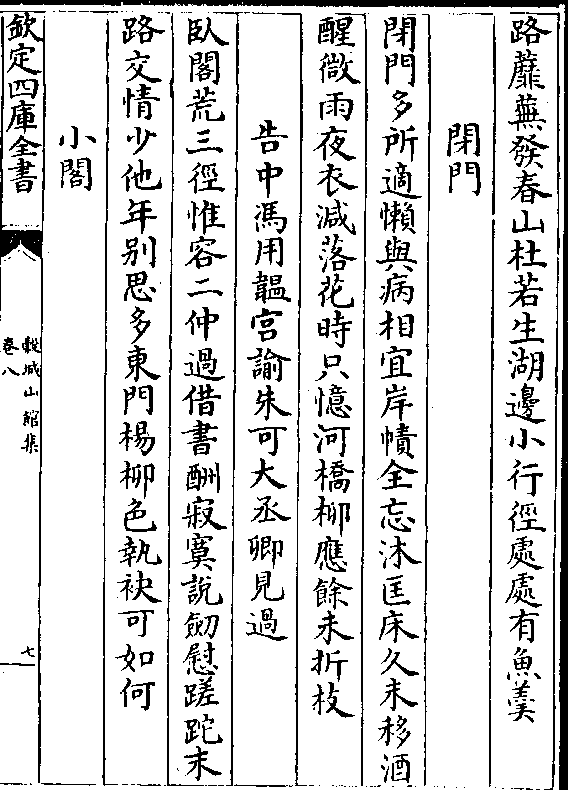 路蘼蕪發春山杜若生湖邊小行徑處處有魚羹
閉門
閉門多所適懶與病相宜岸幘全忘沐匡床久未移酒
醒微雨夜衣減落花時只憶河橋柳應餘未折枝
告中馮用韞宫諭朱可大丞卿見過
臥閣荒三徑惟容二仲過借書酬寂寞說劒慰蹉跎末
路交情少他年别思多東門楊柳色執袂可如何
小閣
欽定四庫全書
穀城山館集
卷八
七